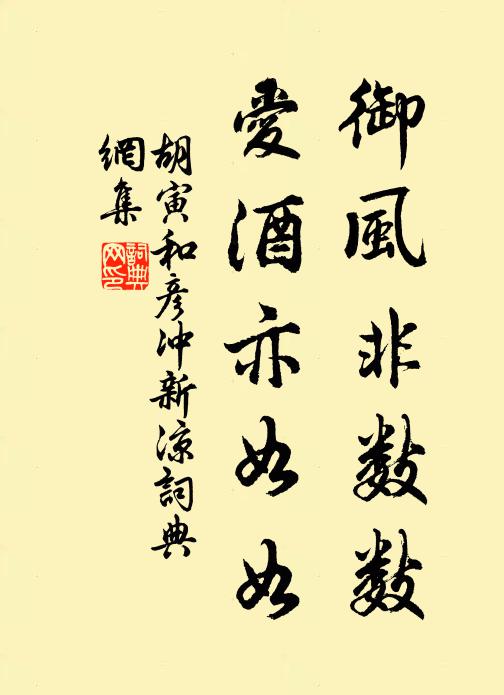 御風非數數
愛酒亦如如
胡寅和彥冲新涼詞典
網集
詞典網印